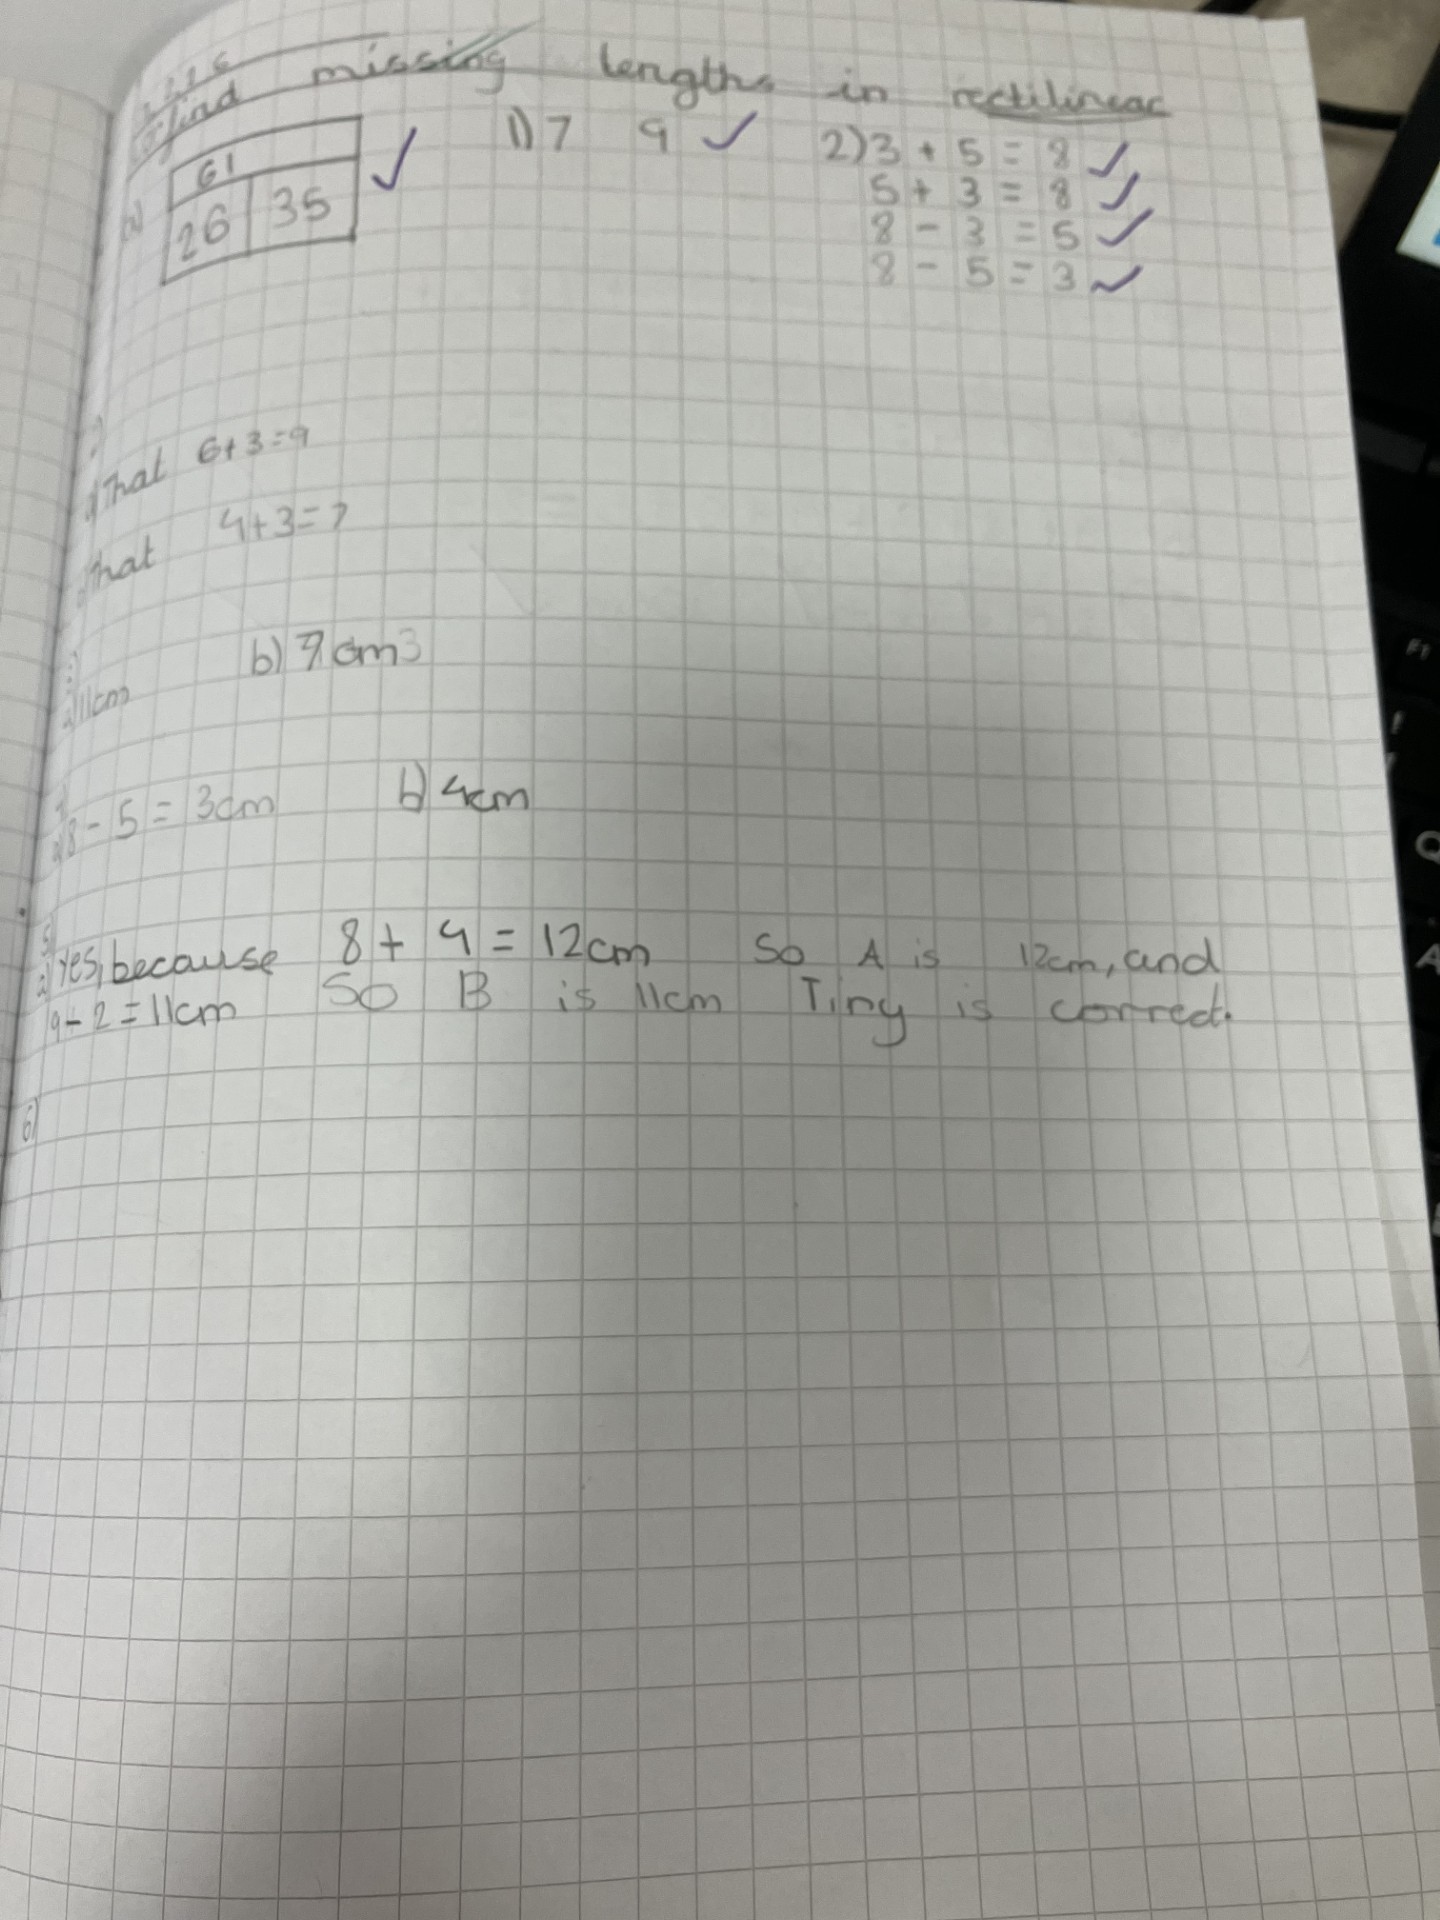 find missing lengths in rectilinear
61
26 35
1) 7 9
2) 3 + 5 = 8
5 + 3 = 8
8 - 3 = 5
8 - 5 = 3
That 6+3=9
That 4+3=7
a) 11cm b) 7cm
8 - 5 = 3cm b) 4cm
5)
a) Yes, because 8 + 4 = 12cm So A is 12cm, and
9 + 2 = 11cm So B is 11cm Tiny is correct.
6)